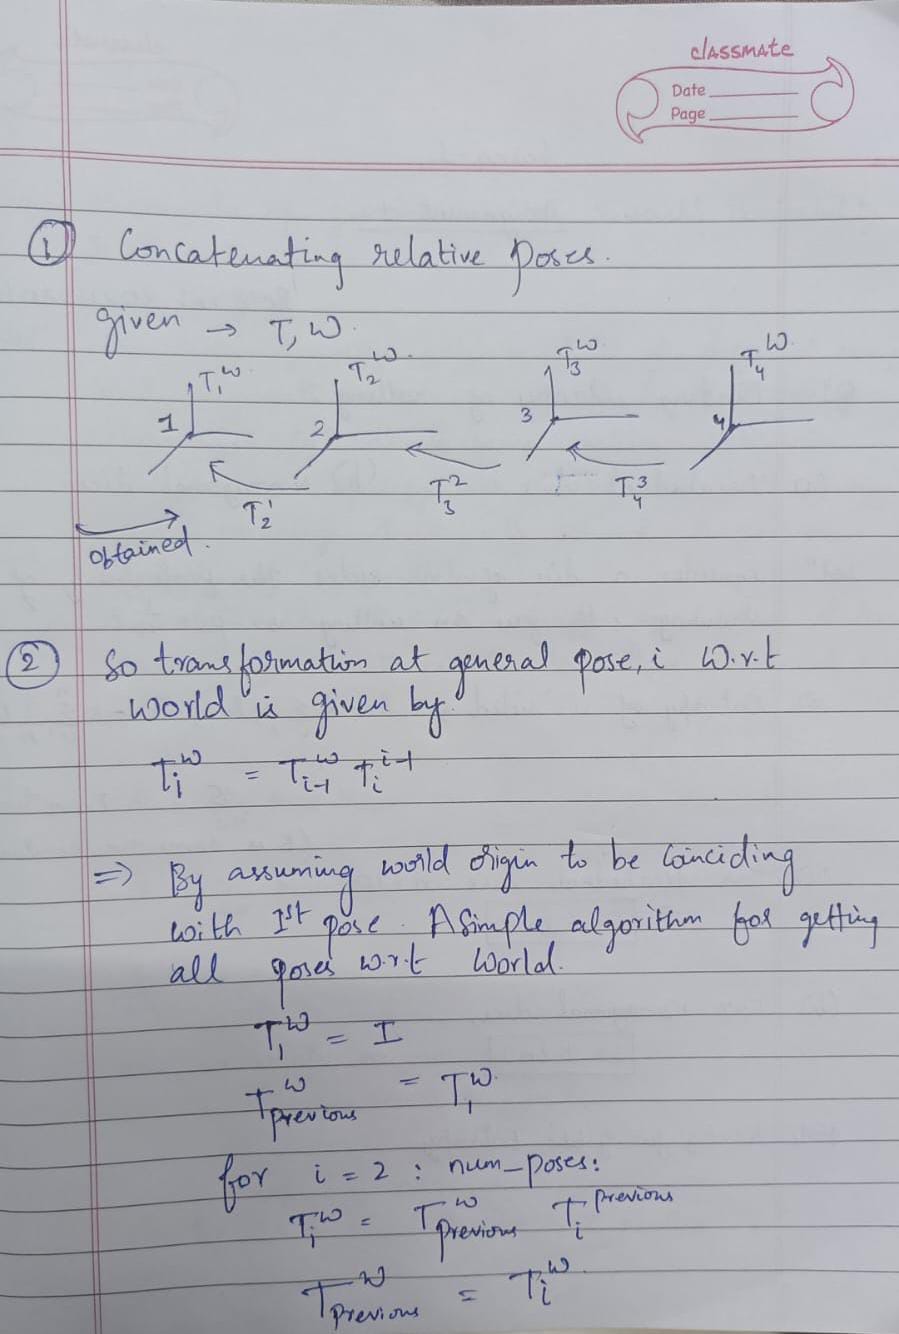 classmate
Date
Page
① Concatenating relative poses.
given → T, W.
T₁ᵂ T₂ᵂ T₃ᵂ T₄ᵂ
1 2 3 4
T₂¹ T₃² T₄³
obtained.
② So transformation at general pose, i w.r.t
World is given by
Tᵢᵂ = Tᵢ₋₁ᵂ Tᵢⁱ⁻¹
⇒ By assuming world origin to be coinciding
with 1st pose. A simple algorithm for getting
all poses w.r.t World.
T₁ᵂ = I
T_previous^W = T₁ᵂ.
for i = 2 : num_poses:
Tᵢᵂ = T_previous^W Tᵢ^previous
T_previous^W = Tᵢᵂ.